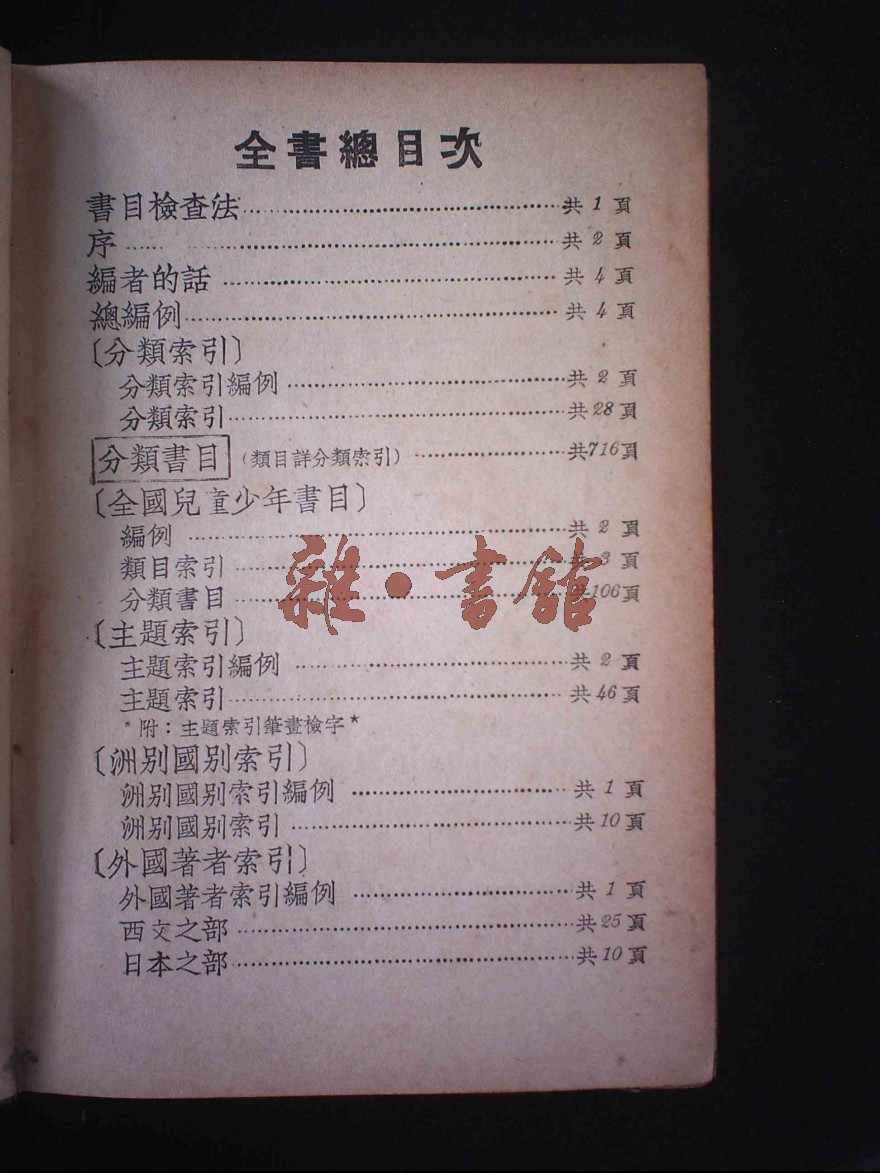 全書總目次
書目檢查法……共 1 頁
序……共 2 頁
編者的話……共 4 頁
總編例……共 4 頁
〔分類索引〕
分類索引編例……共 2 頁
分類索引……共28頁
分類書目（類目詳分類索引）……共716頁
〔全國兒童少年書目〕
編例……共 2 頁
類目索引……共 3 頁
分類書目……共106頁
〔主題索引〕
主題索引編例……共 2 頁
主題索引……共46頁
*附：主題索引筆畫檢字*
〔洲別國別索引〕
洲別國別索引編例……共 1 頁
洲別國別索引……共10頁
〔外國著者索引〕
外國著者索引編例……共 1 頁
西文之部……共25頁
日本之部……共10頁
雜·書館